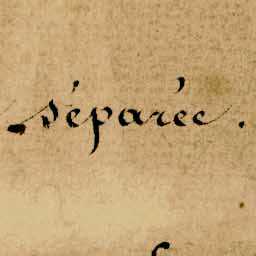 séparée.